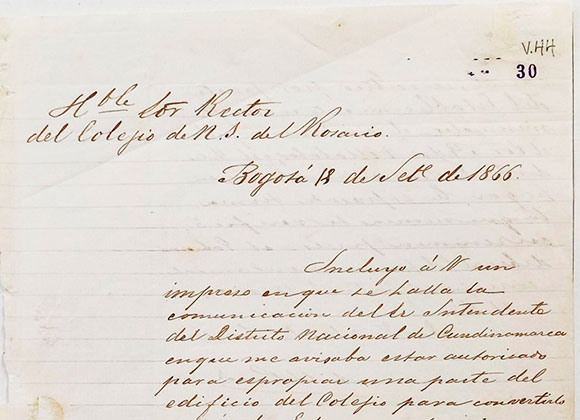 V.44
30
Hble Sor Rector
del Colegio de N. S. del Rosario.
Bogotá 18 de Sete de 1866.
Incluyo á V un
impreso en que se halla la
comunicacion del Sr Intendente
del Distrito Nacional de Cundinamarca
en que me avisaba estar autorizado
para espropiar una parte del
edificio del Colegio para convertirlo